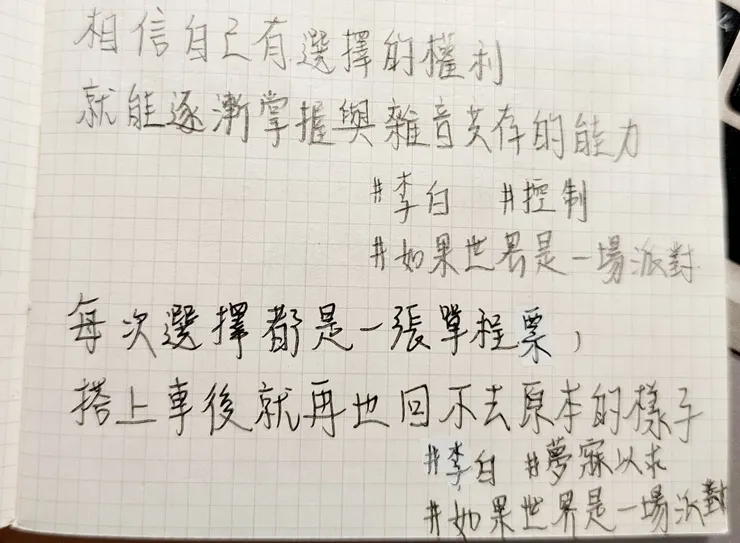 相信自己有選擇的權利
就能逐漸掌握與雜音共存的能力
#李白 #控制
#如果世界是一場派對
每次選擇都是一張單程票,
搭上車後就再也回不去原本的樣子
#李白 #夢寐以求
#如果世界是一場派對